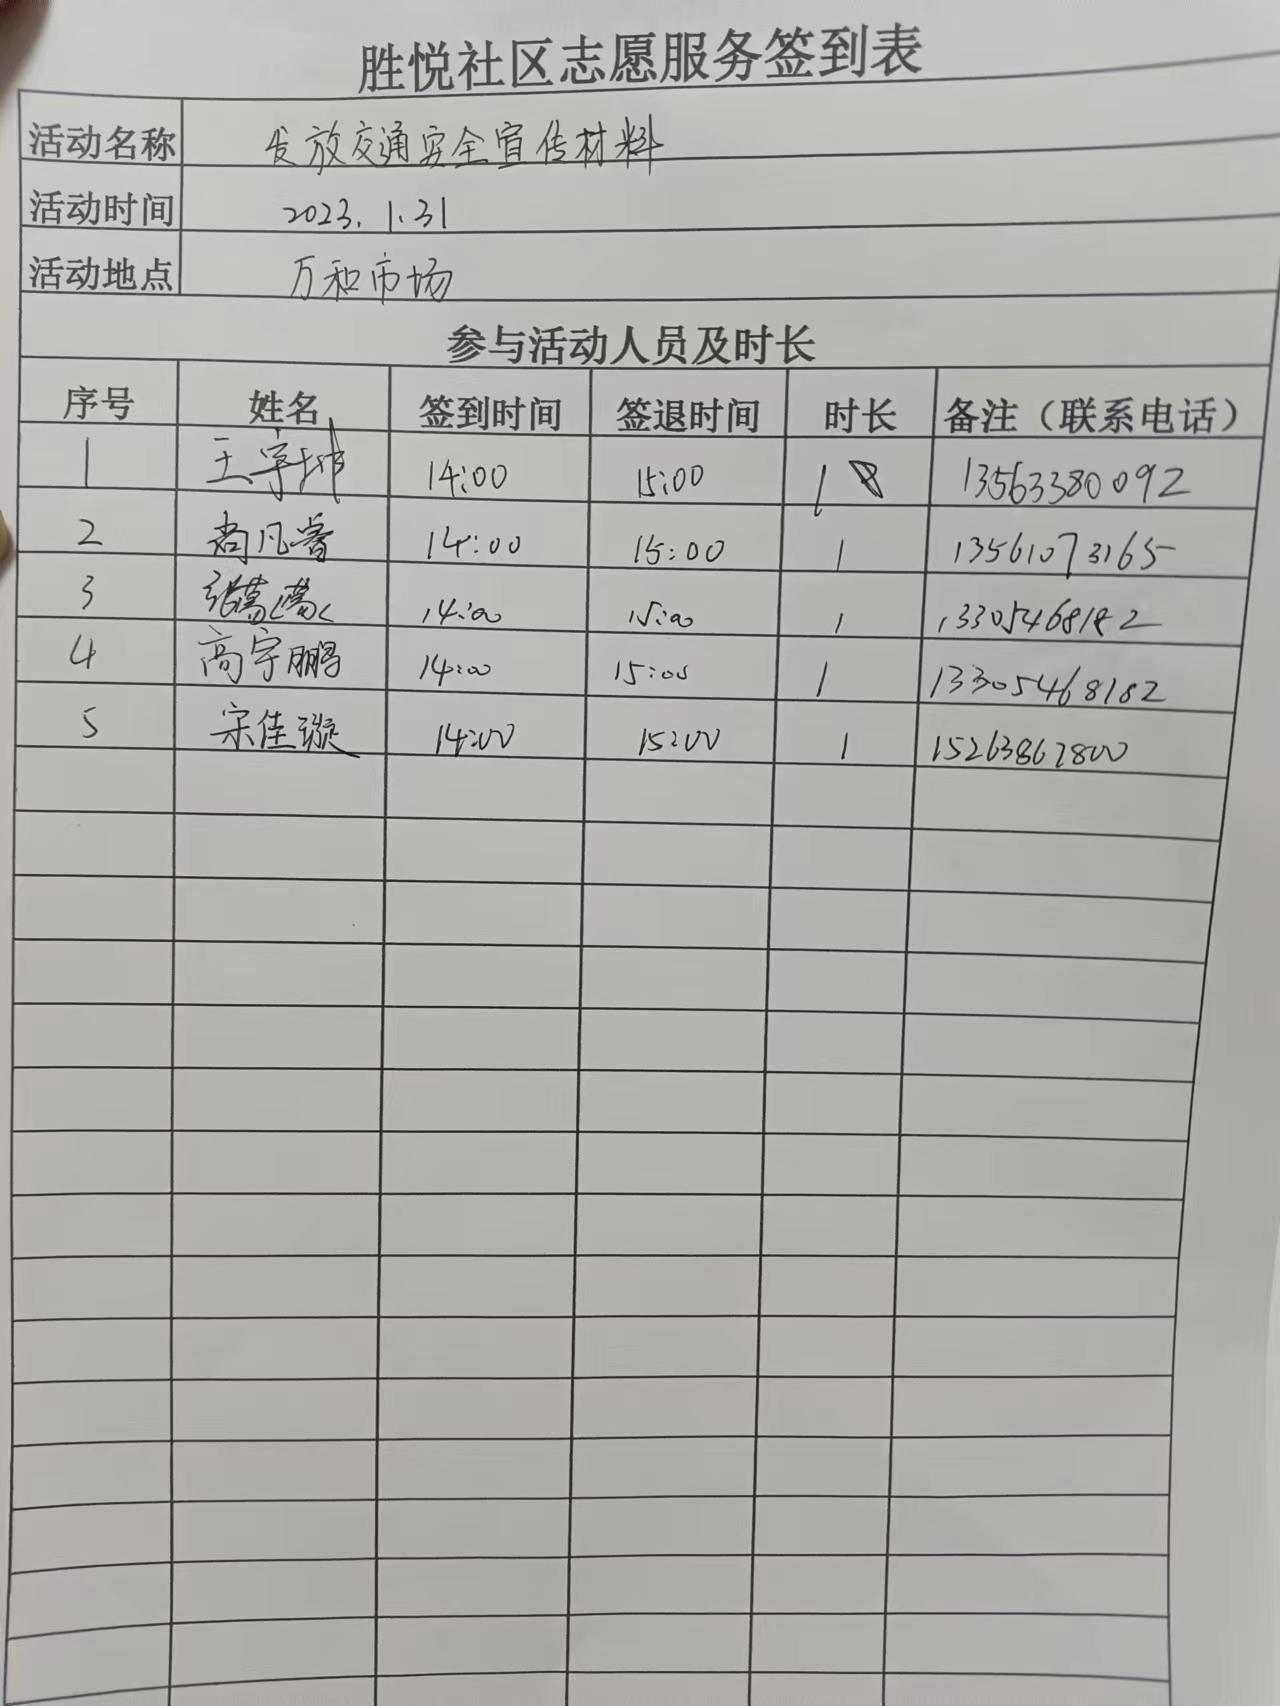 胜悦社区志愿服务签到表
活动名称 发放交通安全宣传材料
活动时间 2023.1.31
活动地点 万和市场
参与活动人员及时长
序号 姓名 签到时间 签退时间 时长 备注（联系电话）
1 王宇坤 14:00 15:00 1 13563380092
2 尚凡睿 14:00 15:00 1 13561073165
3 张 14:00 15:00 1 13305468182
4 高宇鹏 14:00 15:00 1 13305468182
5 宋佳璇 14:00 15:00 1 15263862800